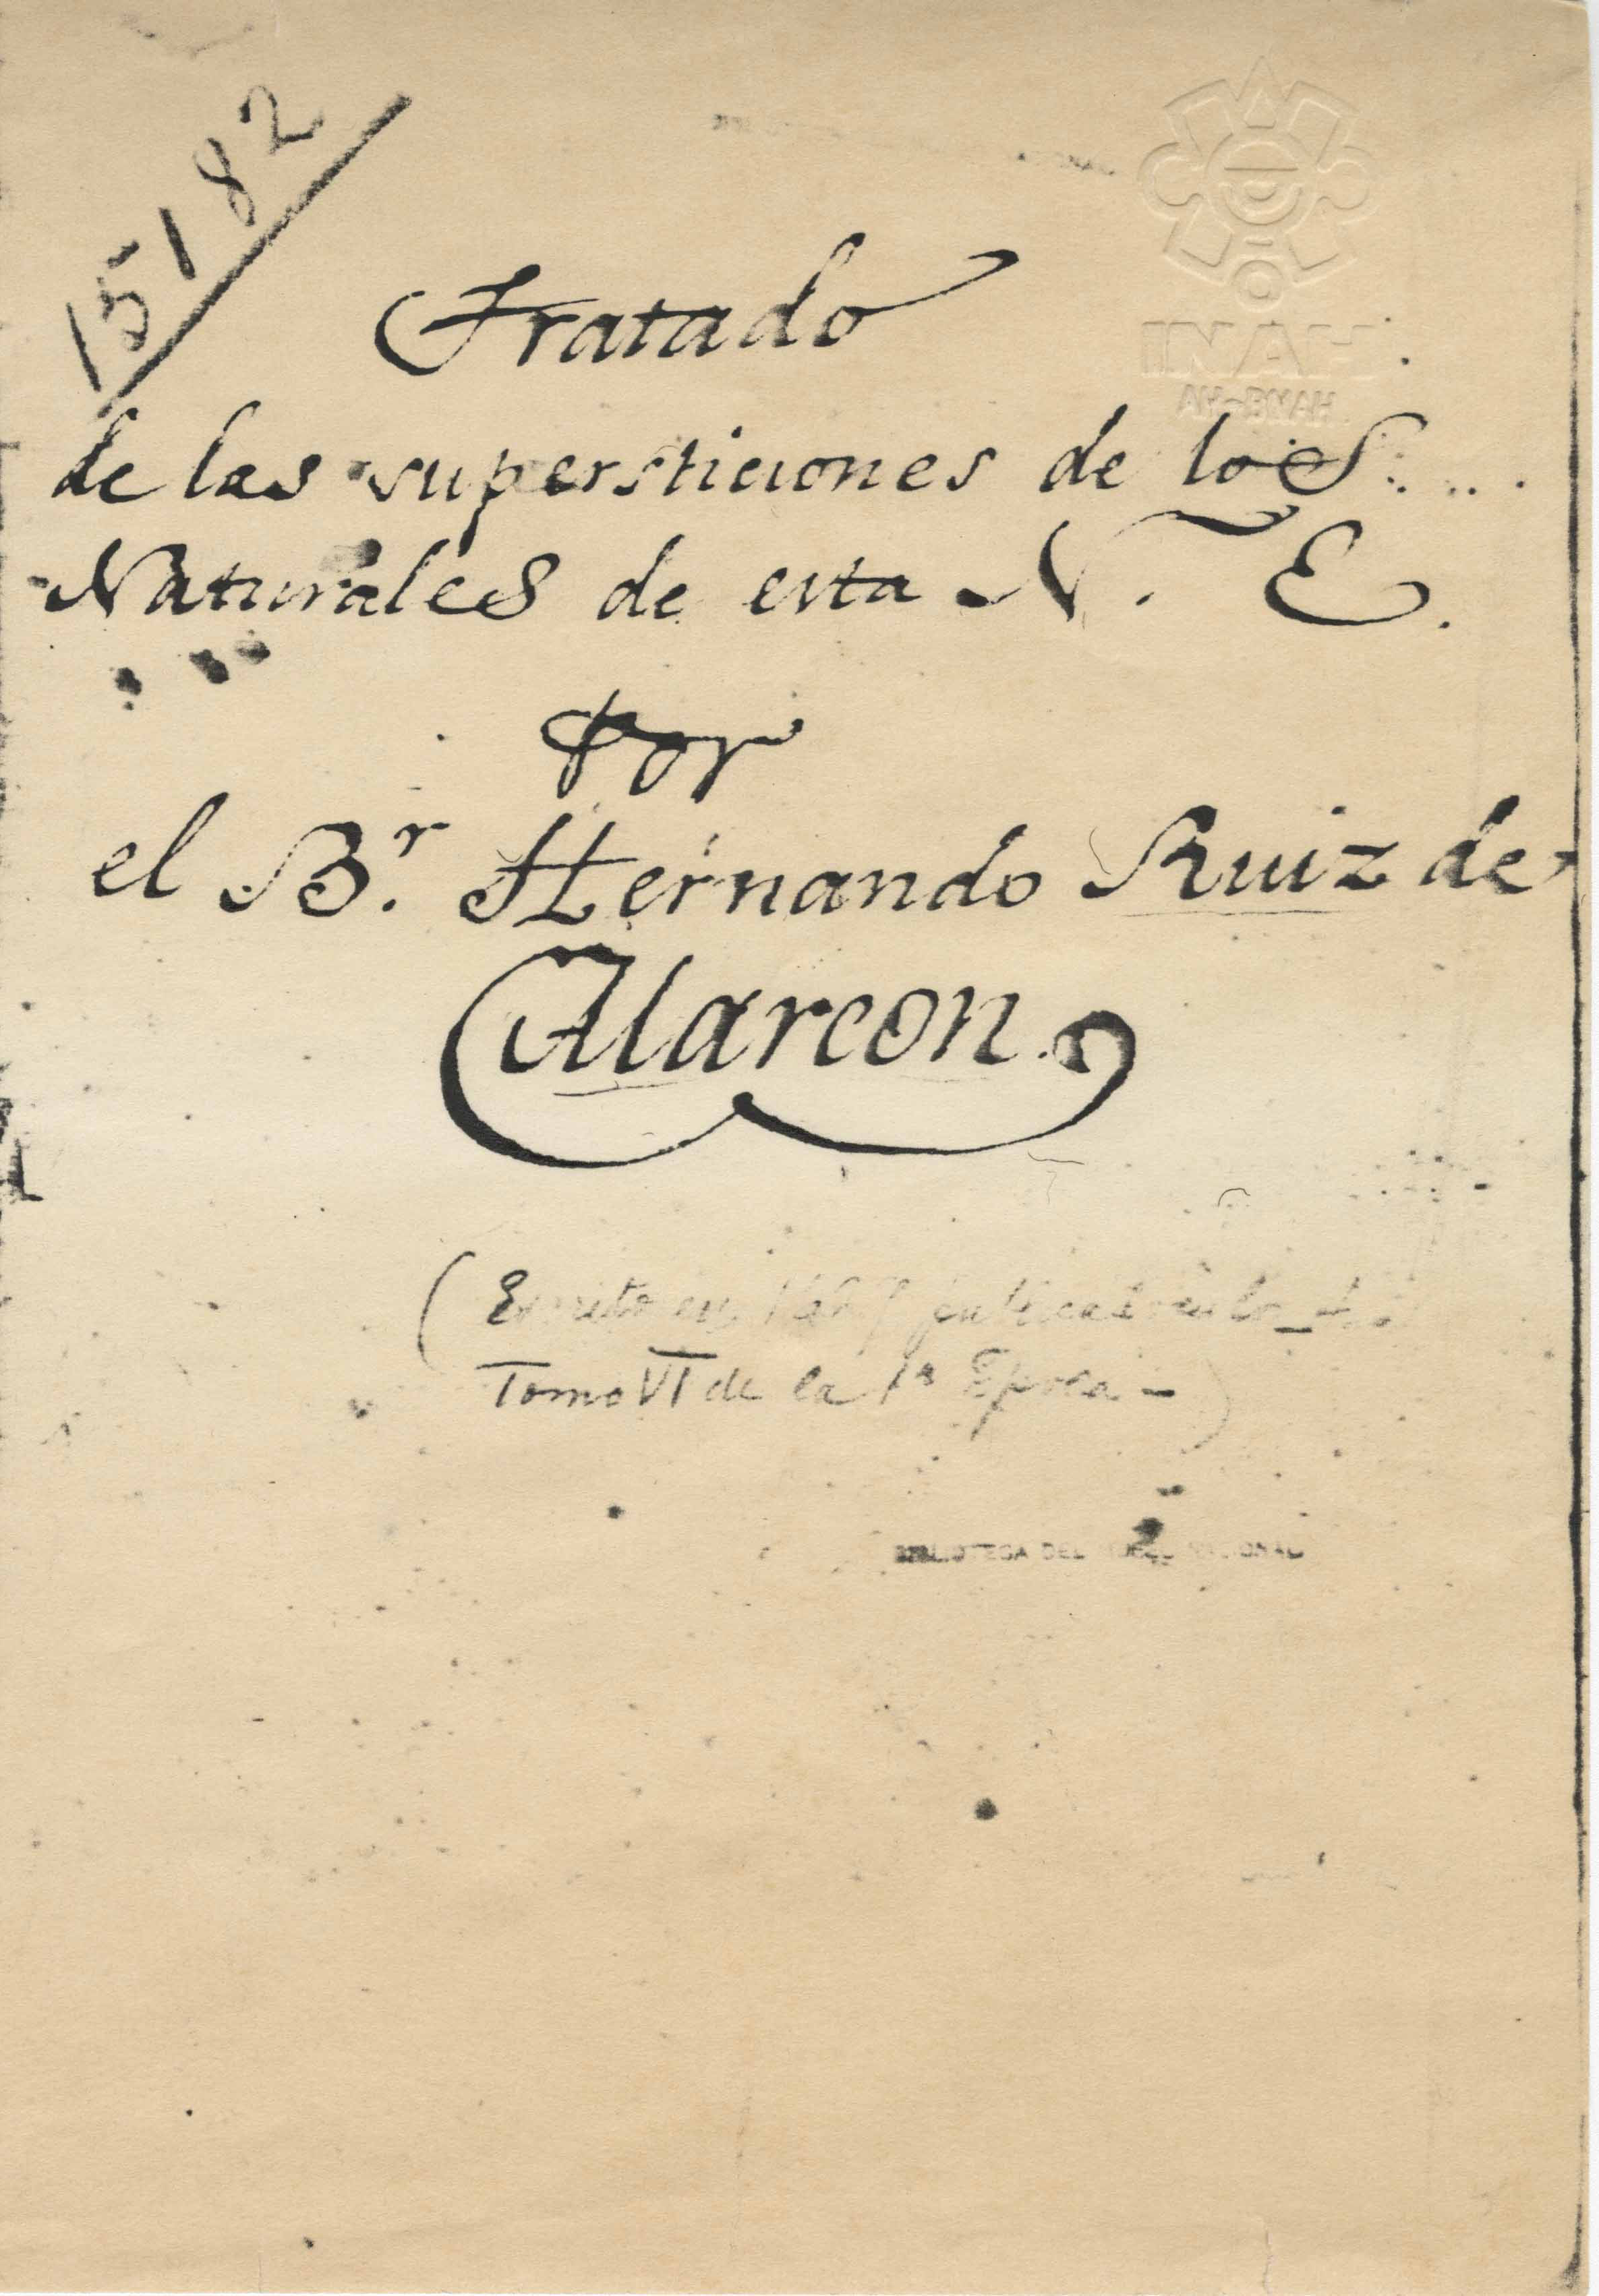 15182
INAH
AH-BNAH
Tratado
de las supersticiones de los....
Naturales de esta N. E.
Por
el Br. Hernando Ruiz de
Alarcon.
(Escrito en publicado en los
Tomo VI de la 1a Epoca-)
BIBLIOTECA DEL MUSEO NACIONAL